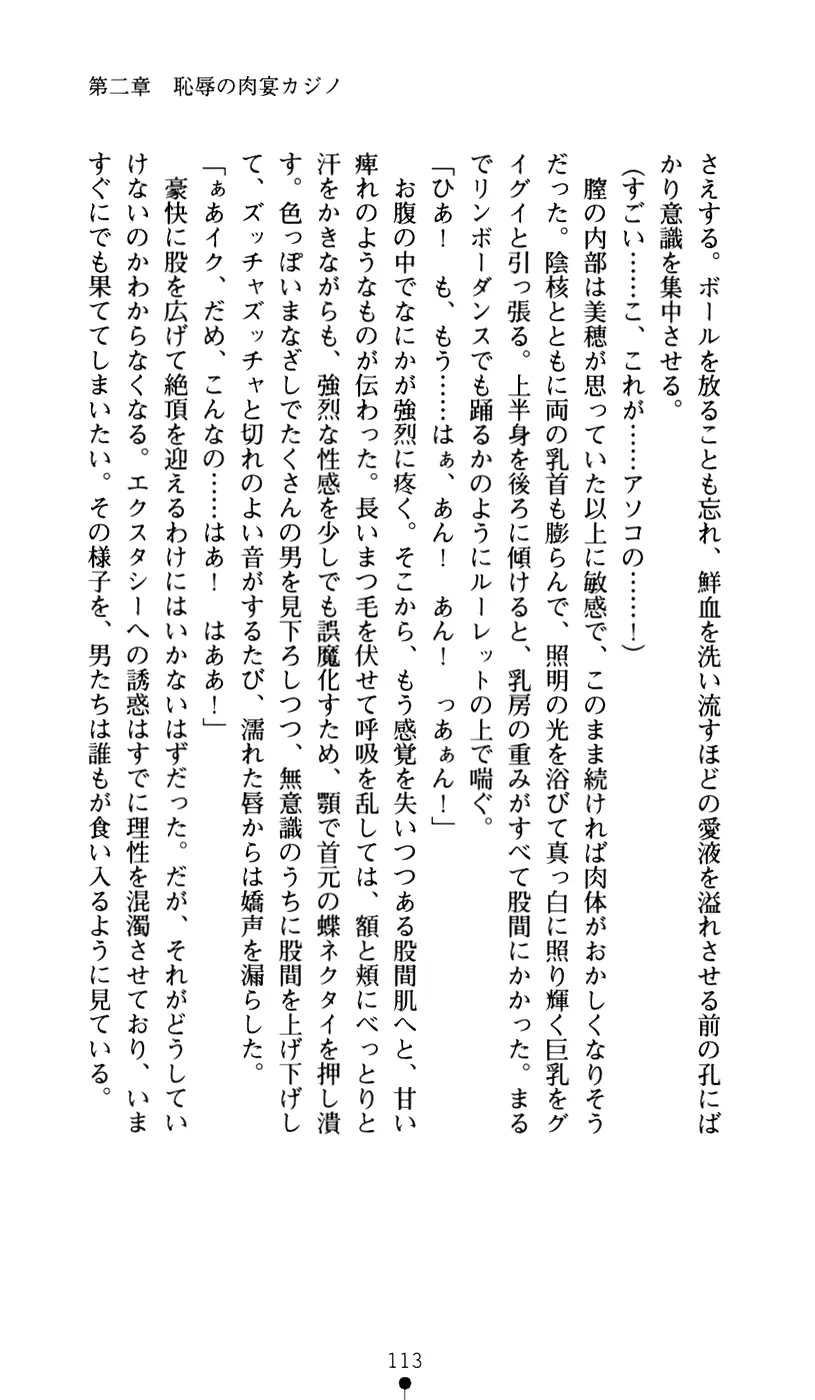 第二章　恥辱の肉宴カジノ
さえする。ボールを放ることも忘れ、鮮血を洗い流すほどの愛液を溢れさせる前の孔にば
かり意識を集中させる。
(すごい……こ、これが……アソコの……！)
　膣の内部は美穂が思っていた以上に敏感で、このまま続ければ肉体がおかしくなりそう
だった。陰核とともに両の乳首も膨らんで、照明の光を浴びて真っ白に照り輝く巨乳をグ
イグイと引っ張る。上半身を後ろに傾けると、乳房の重みがすべて股間にかかった。まる
でリンボーダンスでも踊るかのようにルーレットの上で喘ぐ。
「ひあ！　も、もう……はぁ、あん！　あん！　っあぁん！」
　お腹の中でなにかが強烈に疼く。そこから、もう感覚を失いつつある股間肌へと、甘い
痺れのようなものが伝わった。長いまつ毛を伏せて呼吸を乱しては、額と頬にべっとりと
汗をかきながらも、強烈な性感を少しでも誤魔化すため、顎で首元の蝶ネクタイを押し潰
す。色っぽいまなざしでたくさんの男を見下ろしつつ、無意識のうちに股間を上げ下げし
て、ズッチャズッチャと切れのよい音がするたび、濡れた唇からは嬌声を漏らした。
「ぁあイク、だめ、こんなの……はあ！　はああ！」
　豪快に股を広げて絶頂を迎えるわけにはいかないはずだった。だが、それがどうしてい
けないのかわからなくなる。エクスタシーへの誘惑はすでに理性を混濁させており、いま
すぐにでも果ててしまいたい。その様子を、男たちは誰もが食い入るように見ている。
113